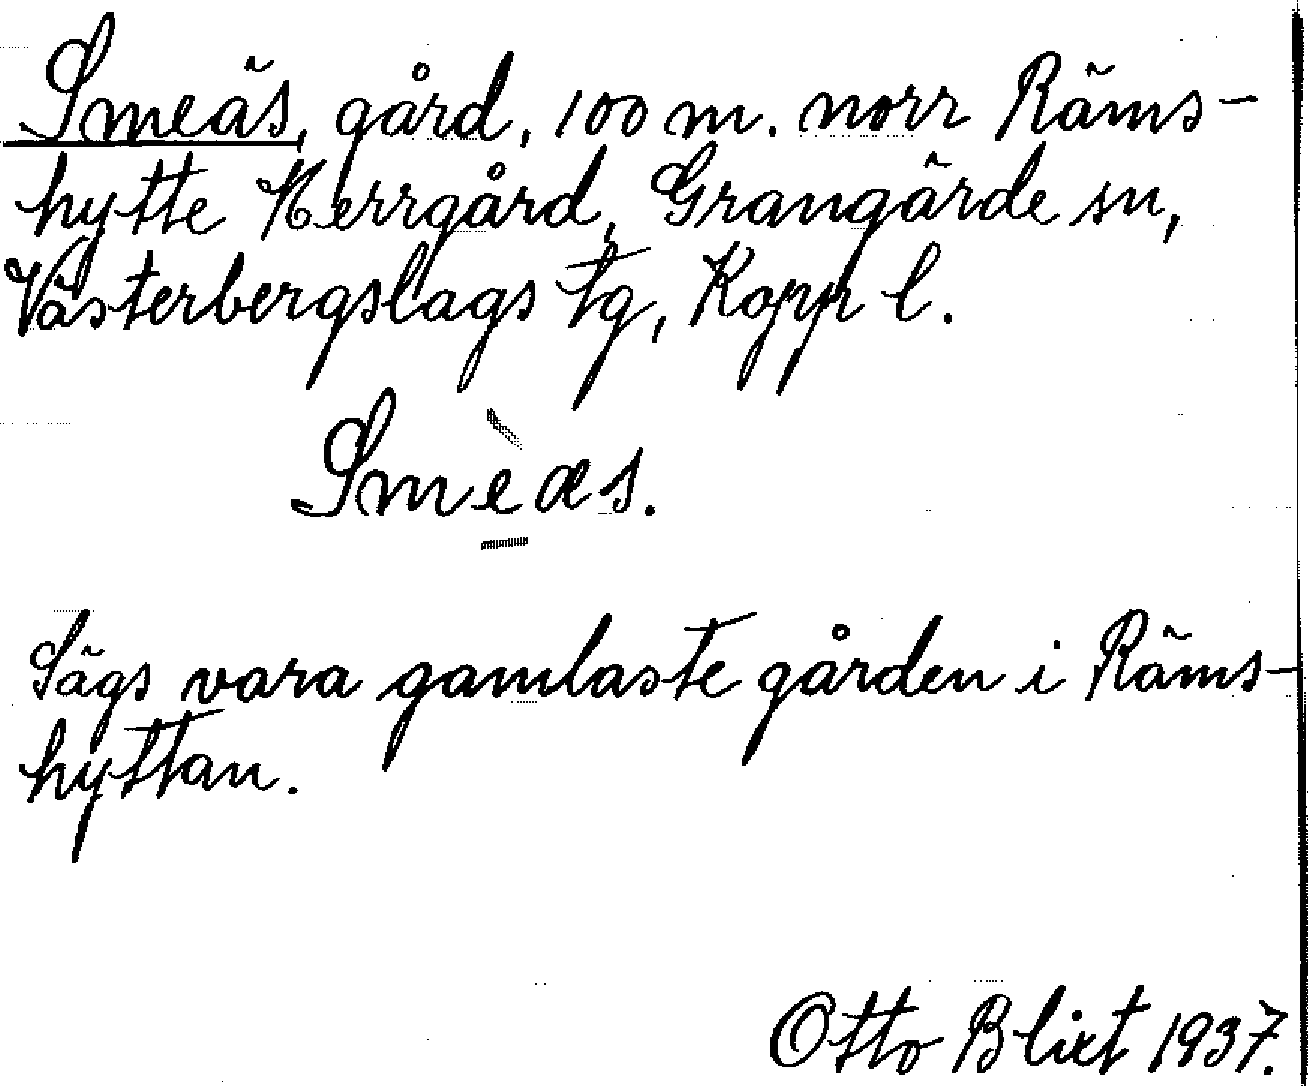 Smeäs, gård, 100 m. norr Räms-
hytte Herrgård, Grangärde sn,
Västerbergslags tg, Kopp l.
Smèæs.
Sägs vara gamlaste gården i Räms-
hyttan.
Otto Blixt 1937.